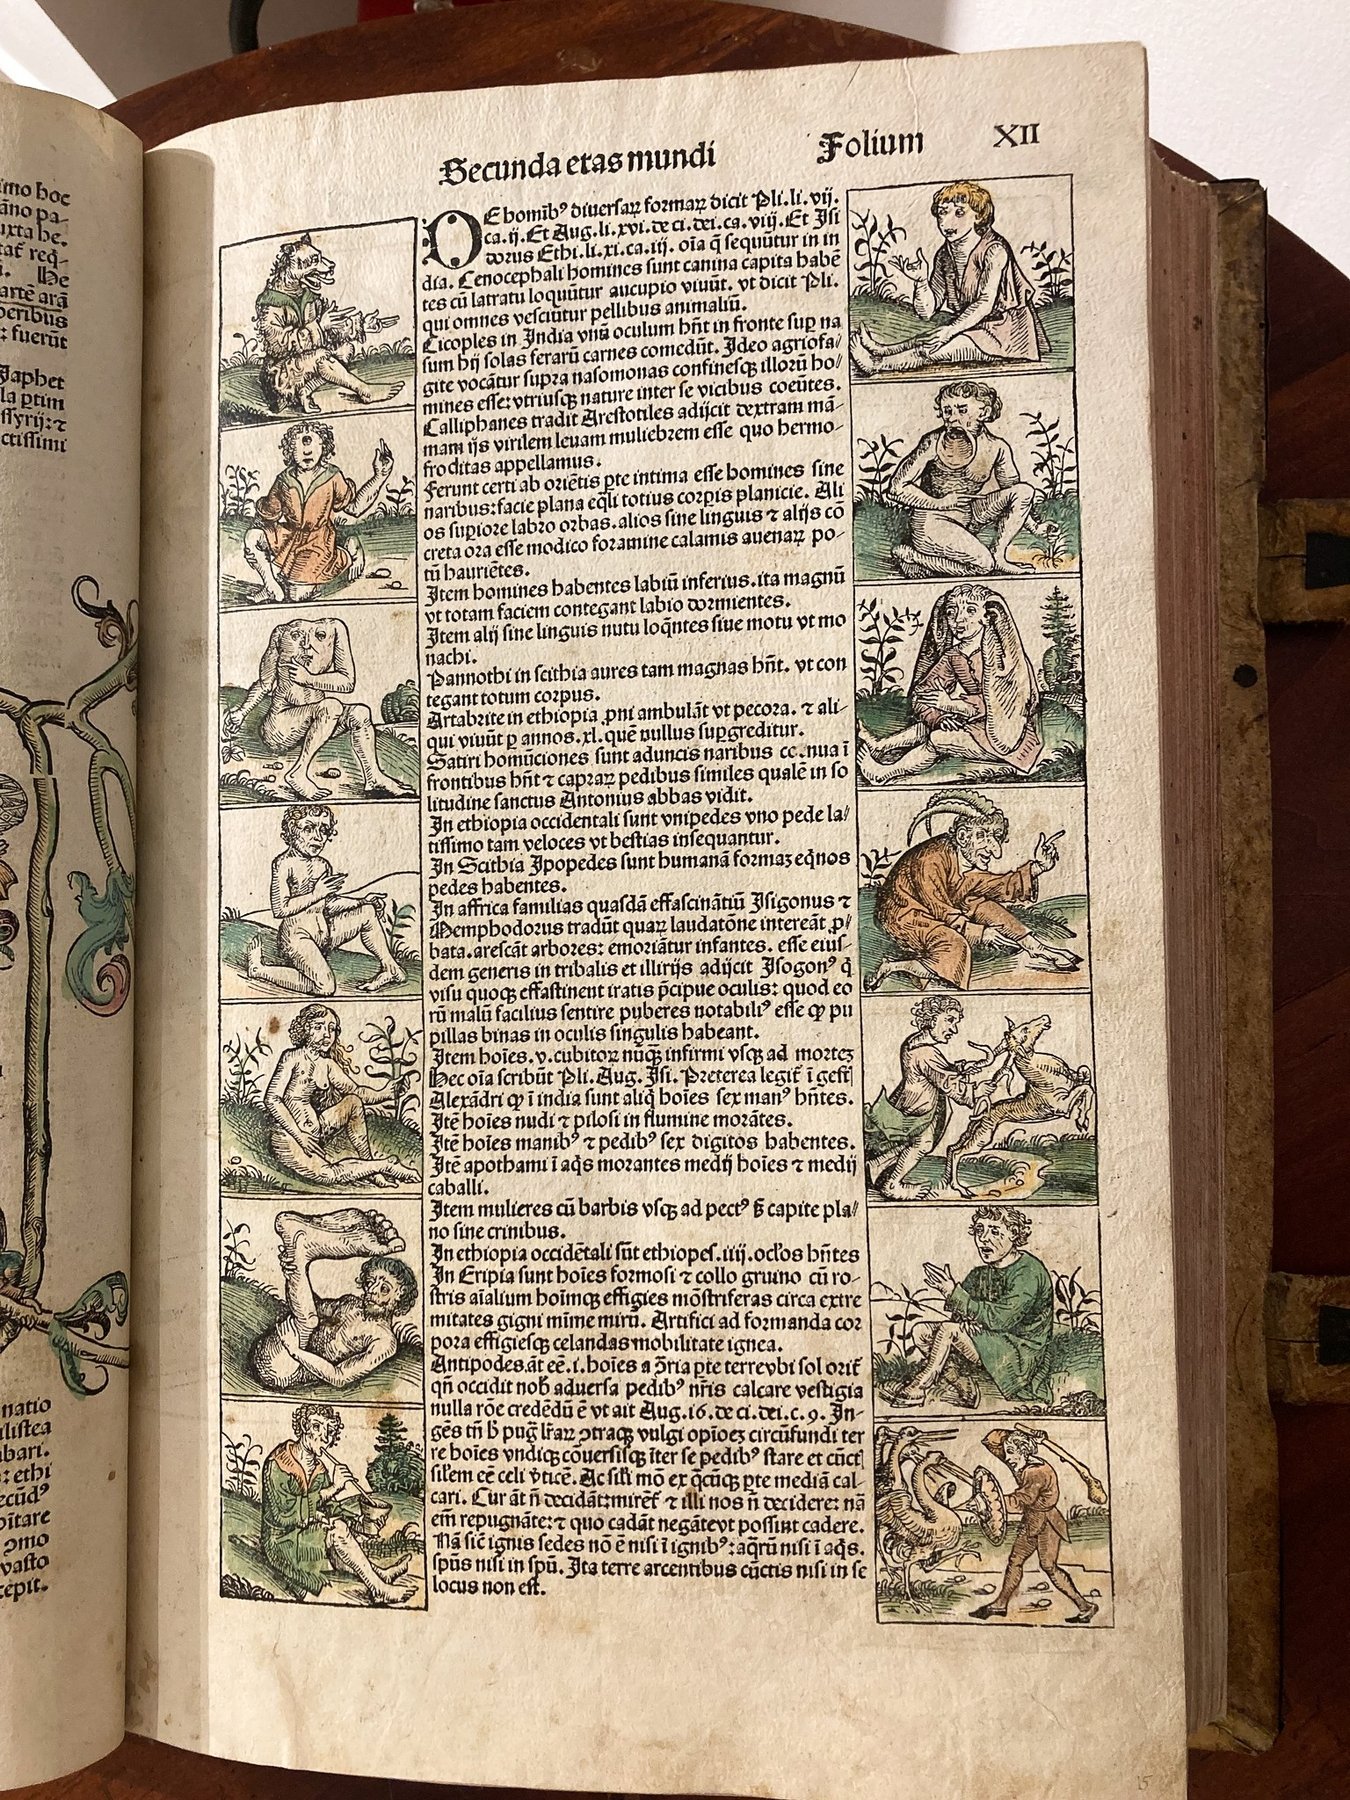 imo hoc
āno pa-
uxta he.
Japhet
la ptim
ssyrij:⁊
ctissimi
natio
ilistea
abari.
: ethi
ecūdꝰ
bitare
ꝯmo
vasto
cepit.
Secunda etas mundi Folium XII
DE homībꝰ diuersaꝝ formaꝝ dicit Pli. li. vij.
ca. ij. Et Aug. li. xvi. de ci. dei. ca. viij. Et Isi
dorus Ethi. li. xi. ca. iij. oīa q̄ sequūtur in in
dia. Cenocephali homines sunt canina capita habē
tes cū latratu loquūtur aucupio viuūt. vt dicit Pli.
qui omnes vesciūtur pellibus animaliū.
Cicoples in India vnū oculum hn̄t in fronte suꝑ na
sum hij solas ferarū carnes comedūt. Ideo agriofa/
gite vocātur supra nasomonas confinesqꝫ illorū ho/
mines esse: vtriusqꝫ nature inter se vicibus coeūtes.
Calliphanes tradit Arestotiles adijcit dextram mā-
mam ijs virilem leuam muliebrem esse quo hermo-
froditas appellamus.
Ferunt certi ab oriētis ꝑte intima esse homines sine
naribus: facie plana eq̄li totius corꝑis planicie. Ali
os suꝑiore labro orbas. alios sine linguis ⁊ alijs cō
creta ora esse modico foramine calamis auenaꝝ po-
tū hauriētes.
Item homines habentes labiū inferius. ita magnū
vt totam faciem contegant labio dormientes.
Item alij sine linguis nutu loq̄ntes siue motu vt mo
nachi.
Pannothi in scithia aures tam magnas hn̄t. vt con
tegant totum corpus.
Artabrite in ethiopia ꝓni ambulāt vt pecora. ⁊ ali-
qui viuūt ꝑ annos. xl. quē nullus suꝑgreditur.
Satiri homūciones sunt aduncis naribus cornua ī
frontibus hn̄t ⁊ capraꝝ pedibus similes qualē in so
litudine sanctus Antonius abbas vidit.
In ethiopia occidentali sunt vnipedes vno pede la/
tissimo tam veloces vt bestias insequantur.
In Scithia Ipopedes sunt humanā formaꝫ eq̄nos
pedes habentes.
In affrica familias quasdā effascinātiū Isigonus ⁊
Nemphodorus tradūt quaꝝ laudatōne intereāt ꝓ/
bata. arescāt arbores: emoriātur infantes. esse eius-
dem generis in tribalis et illirijs adijcit Isogonꝰ q̄
visu quoqꝫ effastinent iratis p̄cipue oculis: quod eo
rū malū facilius sentire puberes notabiliꝰ esse ꝙ pu
pillas binas in oculis singulis habeant.
Item hoīes. v. cubitoꝝ nūq̄ꝫ infirmi vsqꝫ ad morteꝫ
Hec oīa scribūt Pli. Aug. Isi. Preterea legit̄ ī gest̄
Alexādri ꝙ ī india sunt aliq̄ hoīes sex manꝰ hn̄tes.
Itē hoīes nudi ⁊ pilosi in flumine morātes.
Itē hoīes manibꝰ ⁊ pedibꝰ sex digitos habentes.
Itē apothami ī aq̄s morantes medij hoīes ⁊ medij
caballi.
Item mulieres cū barbis vsqꝫ ad pectꝰ ꝫ capite pla/
no sine crinibus.
In ethiopia occidētali sūt ethiopes. iiij. oclꝰos hn̄tes
In Eripia sunt hoīes formosi ⁊ collo gruino cū ro-
stris aīalium hoīmqꝫ effigies mōstriferas circa extre
mitates gigni mīme mirū. Artifici ad formanda cor
pora effigiesqꝫ celandas mobilitate ignea.
Antipodes. āt eē. i. hoīes a ꝯ̄ria ꝑte terre vbi sol orit̄
qn̄ occidit nob̄ aduersa pedibꝰ nr̄is calcare vestigia
nulla rōe credēdū ē vt ait Aug. 16. de ci. dei. c. 9. In-
gēs tn̄ h̄ puḡ lr̄aꝝ ꝯtraqꝫ vulgi opīoēꝫ circūfundi ter
re hoīes vndiqꝫ cōuersisqꝫ īter se pedibꝰ stare et cūct
sil̄em eē celi v̄ticē. Ac sil̄i mō ex q̄cūqꝫ ꝑte mediā cal-
cari. Cur āt n̄ decidāt: mirēt̄ ⁊ illi nos n̄ decidere: nā
em̄ repugnāte: ⁊ quo cadāt negāte vt possint cadere.
Nā sic̄ ignis sedes nō ē nisi ī ignibꝰ: aq̄rū nisi ī aq̄s.
spūs nisi in spū. Ita terre arcentibus cūctis nisi in se
locus non est.
15